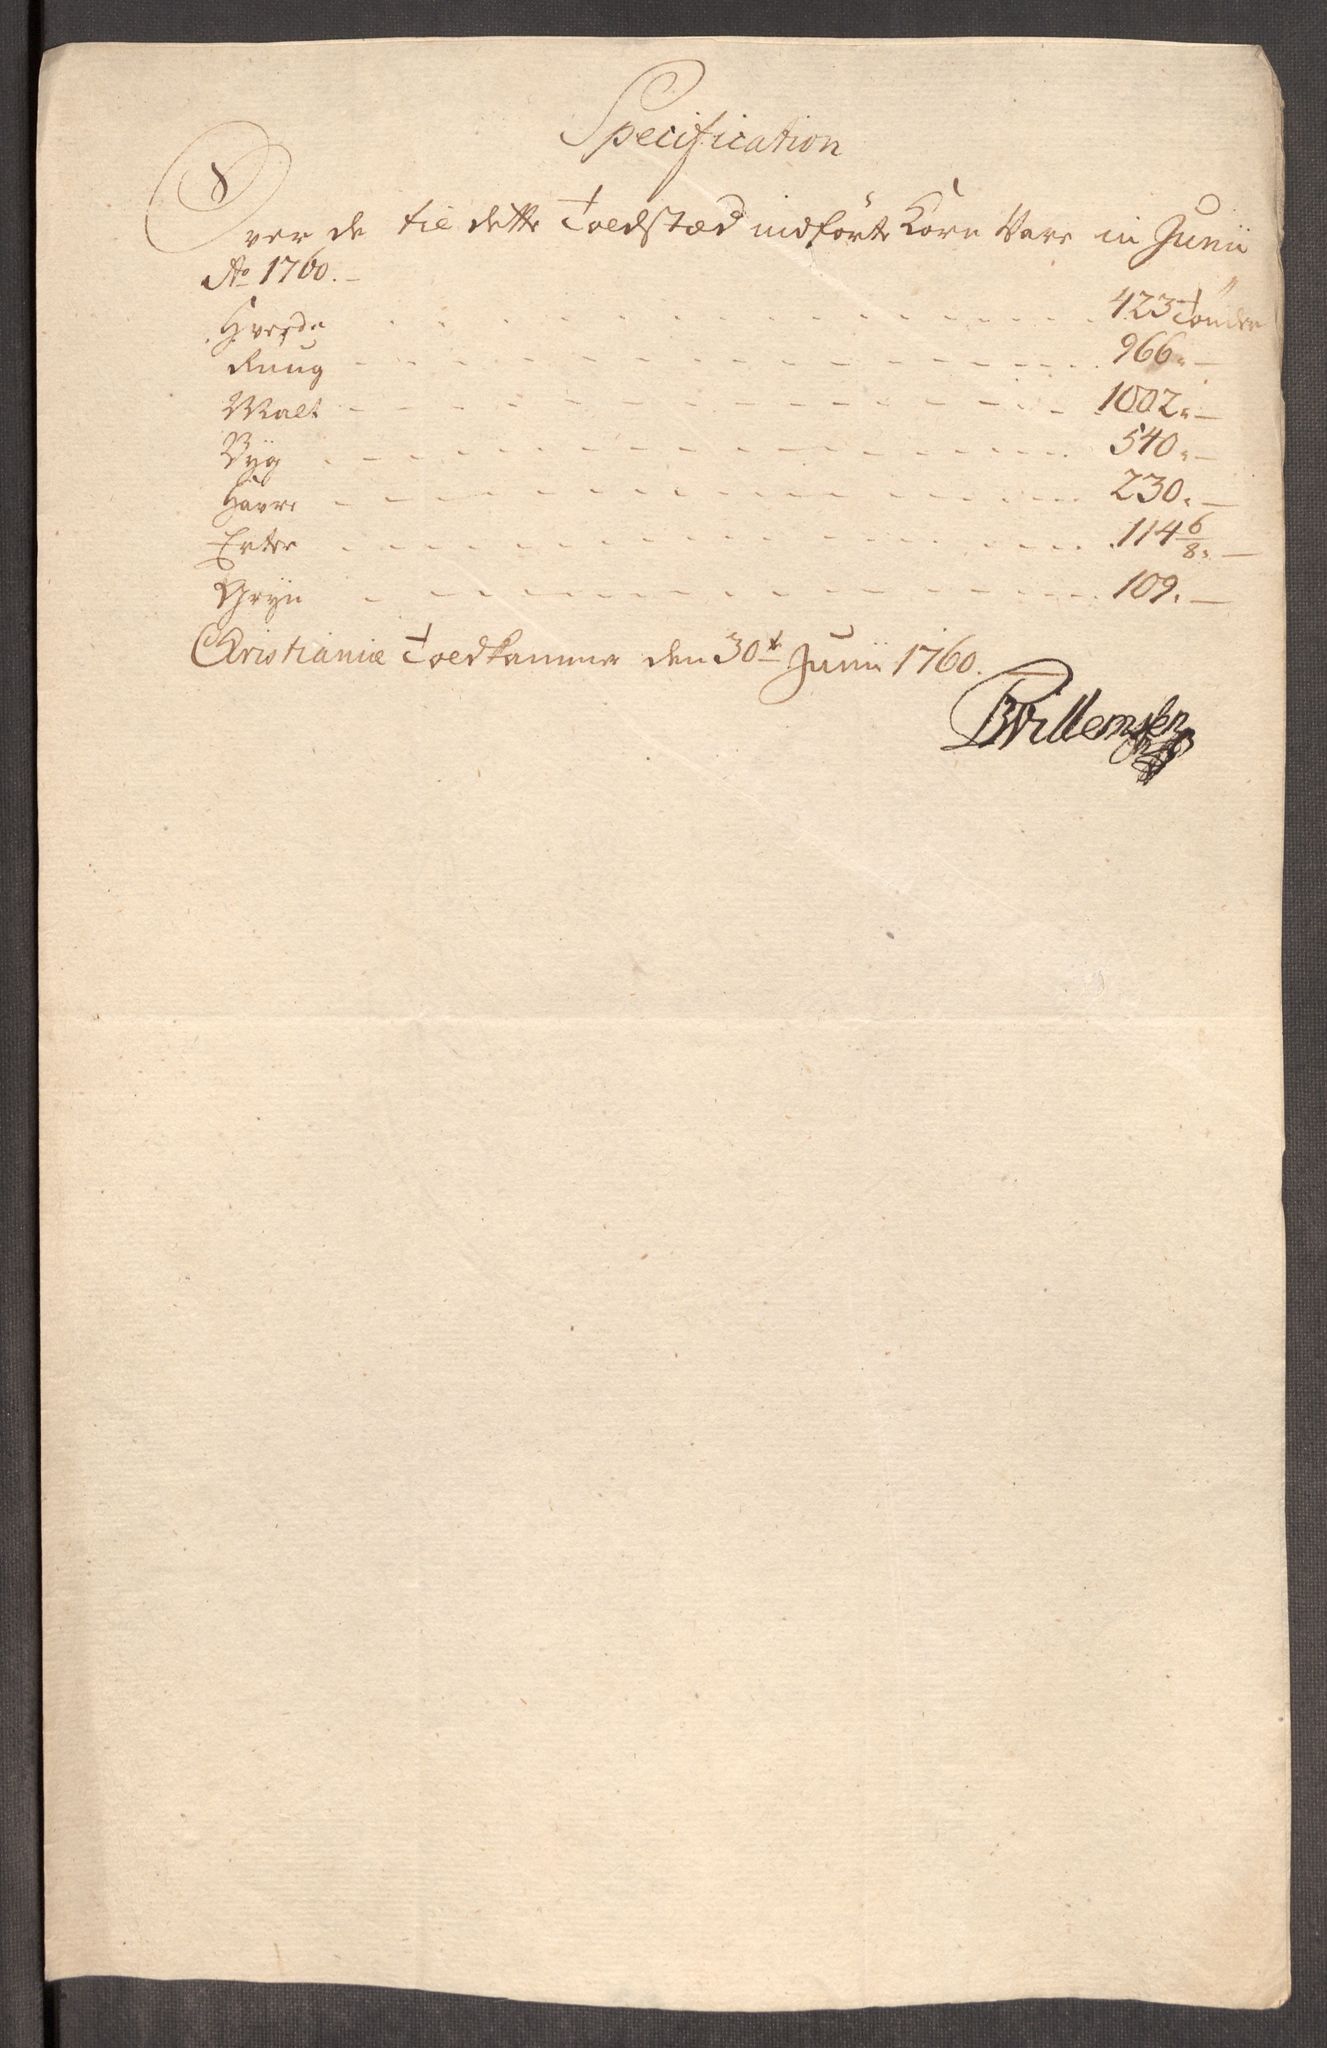 Specification
Over de til dette Toldstæd indförte Korn Vare in Junii
Ao 1760.
Hvede - - - 423 Tönder
Ruug - - - 966 " -
Malt - - - 1002 " -
Byg - - - 540 " -
Havre - - - 230 " -
Erter - - - 114 6/8 " -
Gryn - - - 109 " -
Christianiæ Toldkammer den 30te Junii 1760.
BWillemsen